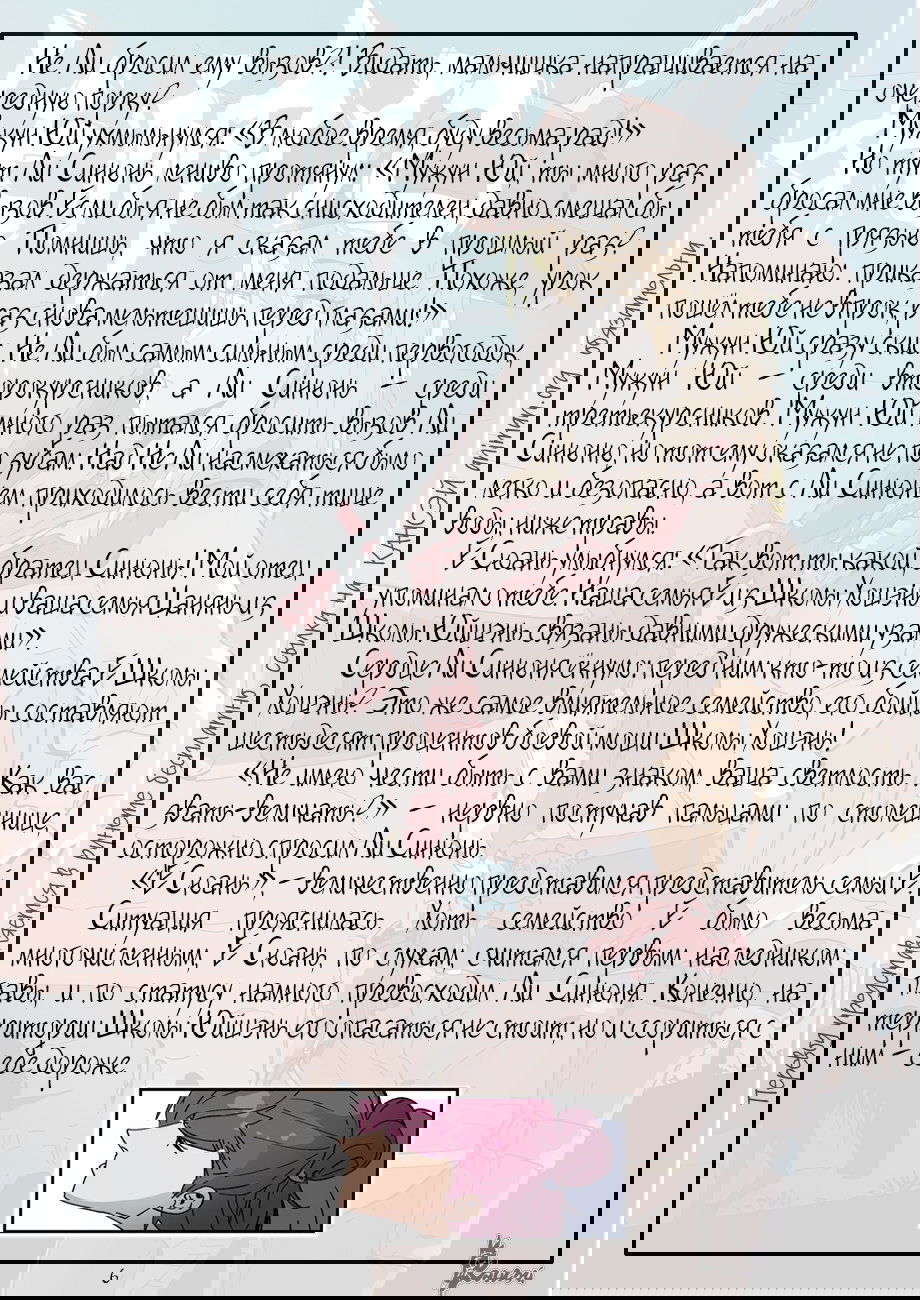 Не Ли бросил ему вызов?! Видать, мальчишка напрашивается на
очередную порку?
Мужун Юй ухмыльнулся: «В любое время, буду весьма рад!»
Но тут Ли Синюнь лениво протянул: «Мужун Юй, ты много раз
бросал мне вызов. Если бы я не был так снисходителен, давно смешал бы
тебя с грязью. Помнишь, что я сказал тебе в прошлый раз?
Напоминаю: приказал держаться от меня подальше. Похоже, урок
пошёл тебе не впрок, раз снова мельтешишь перед глазами!»
Мужун Юй сразу скис. Не Ли был самым сильным среди первогодок,
Мужун Юй – среди второкурсников, а Ли Синюнь – среди
третьекурсников. Мужун Юй много раз пытался бросить вызов Ли
Синюню, но тот ему оказался не по зубам. Над Не Ли насмехаться было
легко и безопасно, а вот с Ли Синюнем приходилось вести себя тише
воды, ниже травы.
Гу Сюань улыбнулся: «Так вот ты какой, братец Синюнь! Мой отец
упоминал о тебе. Наша семья Гу из Школы Хошэнь и ваша семья Цаньянь из
Школы Юйшэнь связаны давними дружескими узами».
Сердце Ли Синюня ёкнуло: перед ним кто-то из семейства Гу Школы
Хошэнь? Это же самое влиятельное семейство, его бойцы составляют
шестьдесят процентов боевой мощи Школы Хошэнь!
«Не имею чести быть с вами знаком, ваша светлость. Как вас
звать-величать?» – нервно постучав пальцами по столешнице,
осторожно спросил Ли Синюнь.
«Гу Сюань», – величественно представился представитель семьи Гу.
Ситуация прояснилась. Хоть семейство Гу было весьма
многочисленным, Гу Сюань, по слухам, считался первым наследником
главы и по статусу намного превосходил Ли Синюня. Конечно, на
территории Школы Юйшэнь его опасаться не стоит, но и ссориться с
ним – себе дороже.
6